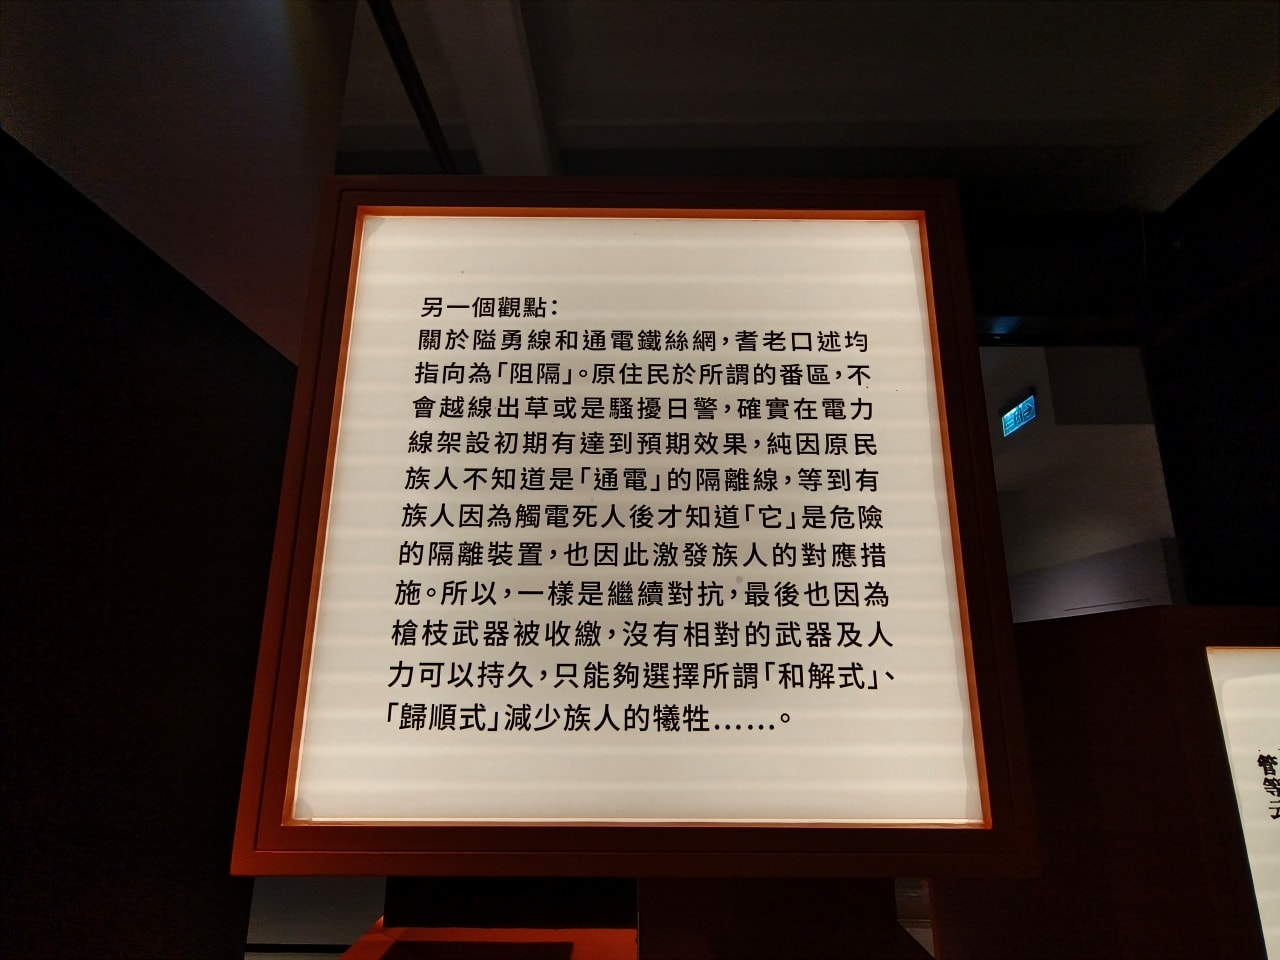 另一個觀點：
關於隘勇線和通電鐵絲網，耆老口述均
指向為「阻隔」。原住民於所謂的番區，不
會越線出草或是騷擾日警，確實在電力
線架設初期有達到預期效果，純因原民
族人不知道是「通電」的隔離線，等到有
族人因為觸電死人後才知道「它」是危險
的隔離裝置，也因此激發族人的對應措
施。所以，一樣是繼續對抗，最後也因為
槍枝武器被收繳，沒有相對的武器及人
力可以持久，只能夠選擇所謂「和解式」、
「歸順式」減少族人的犧牲……。
管
等